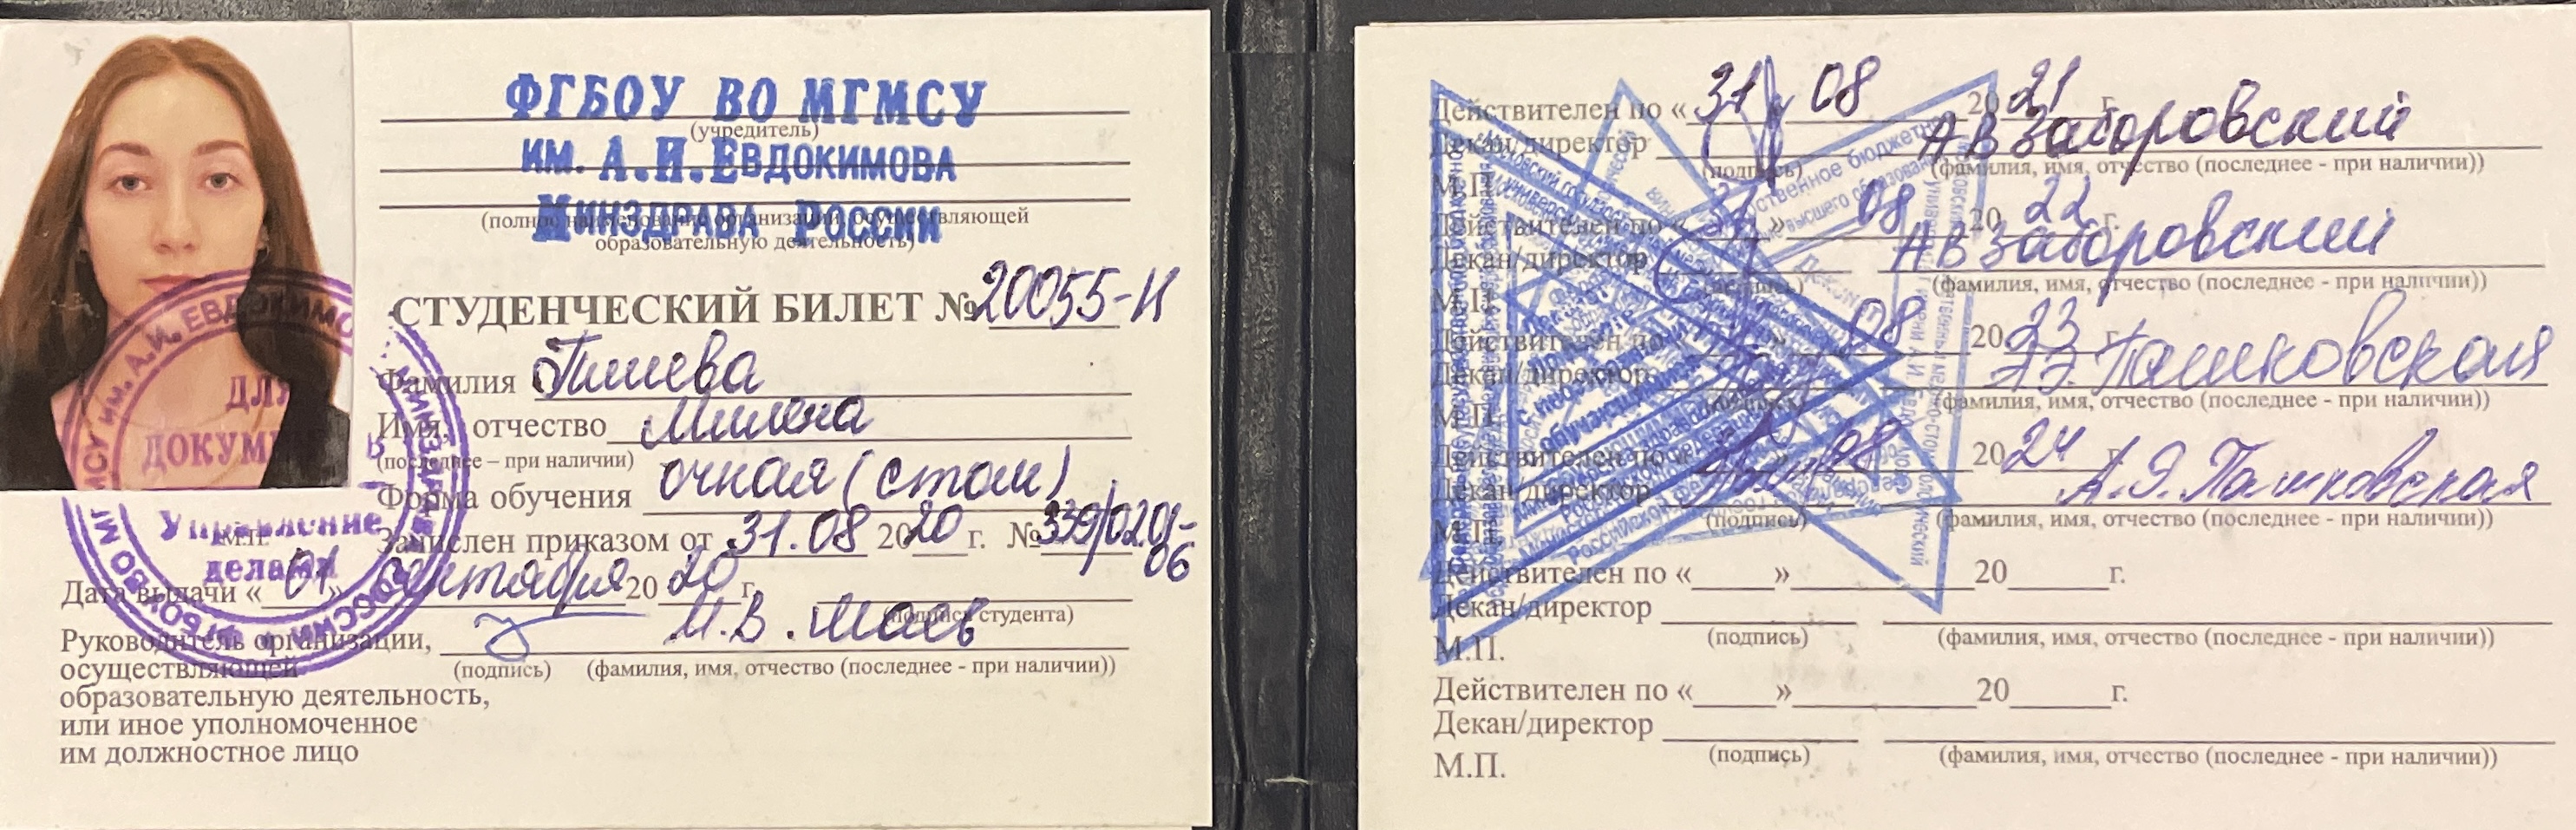 ФГБОУ ВО МГМСУ
(учредитель)
им. А.И. Евдокимова
Минздрава России
(полное наименование организации, осуществляющей
образовательную деятельность)
СТУДЕНЧЕСКИЙ БИЛЕТ № 20055-И
Фамилия Плиева
Имя, отчество Милена
(последнее – при наличии)
Форма обучения очная (стом)
Зачислен приказом от 31.08 2020 г. № 339/02.01-06
Дата выдачи « 01 » сентября 20 20 г.
(подпись студента)
Руководитель организации, М.В. Маев
осуществляющей (подпись) (фамилия, имя, отчество (последнее - при наличии))
образовательную деятельность,
или иное уполномоченное
им должностное лицо
М.П.
ДЛЯ
ДОКУМ
Управление
делами
Действителен по « 31 » 08 20 21 г.
Декан/директор АВ Заборовский
(подпись) (фамилия, имя, отчество (последнее - при наличии))
М.П.
Действителен по « 31 » 08 20 22 г.
Декан/директор АВ Заборовский
(фамилия, имя, отчество (последнее - при наличии))
М.П.
Действителен по « » 08 20 23 г.
Декан/директор Пашковская
(фамилия, имя, отчество (последнее - при наличии))
М.П.
Действителен по « » 08 20 24
Декан/директор Пашковская
(подпись) (фамилия, имя, отчество (последнее - при наличии))
М.П.
Действителен по «____»____________20____г.
Декан/директор
(подпись) (фамилия, имя, отчество (последнее - при наличии))
М.П.
Действителен по «____»____________20____г.
Декан/директор
(подпись) (фамилия, имя, отчество (последнее - при наличии))
М.П.